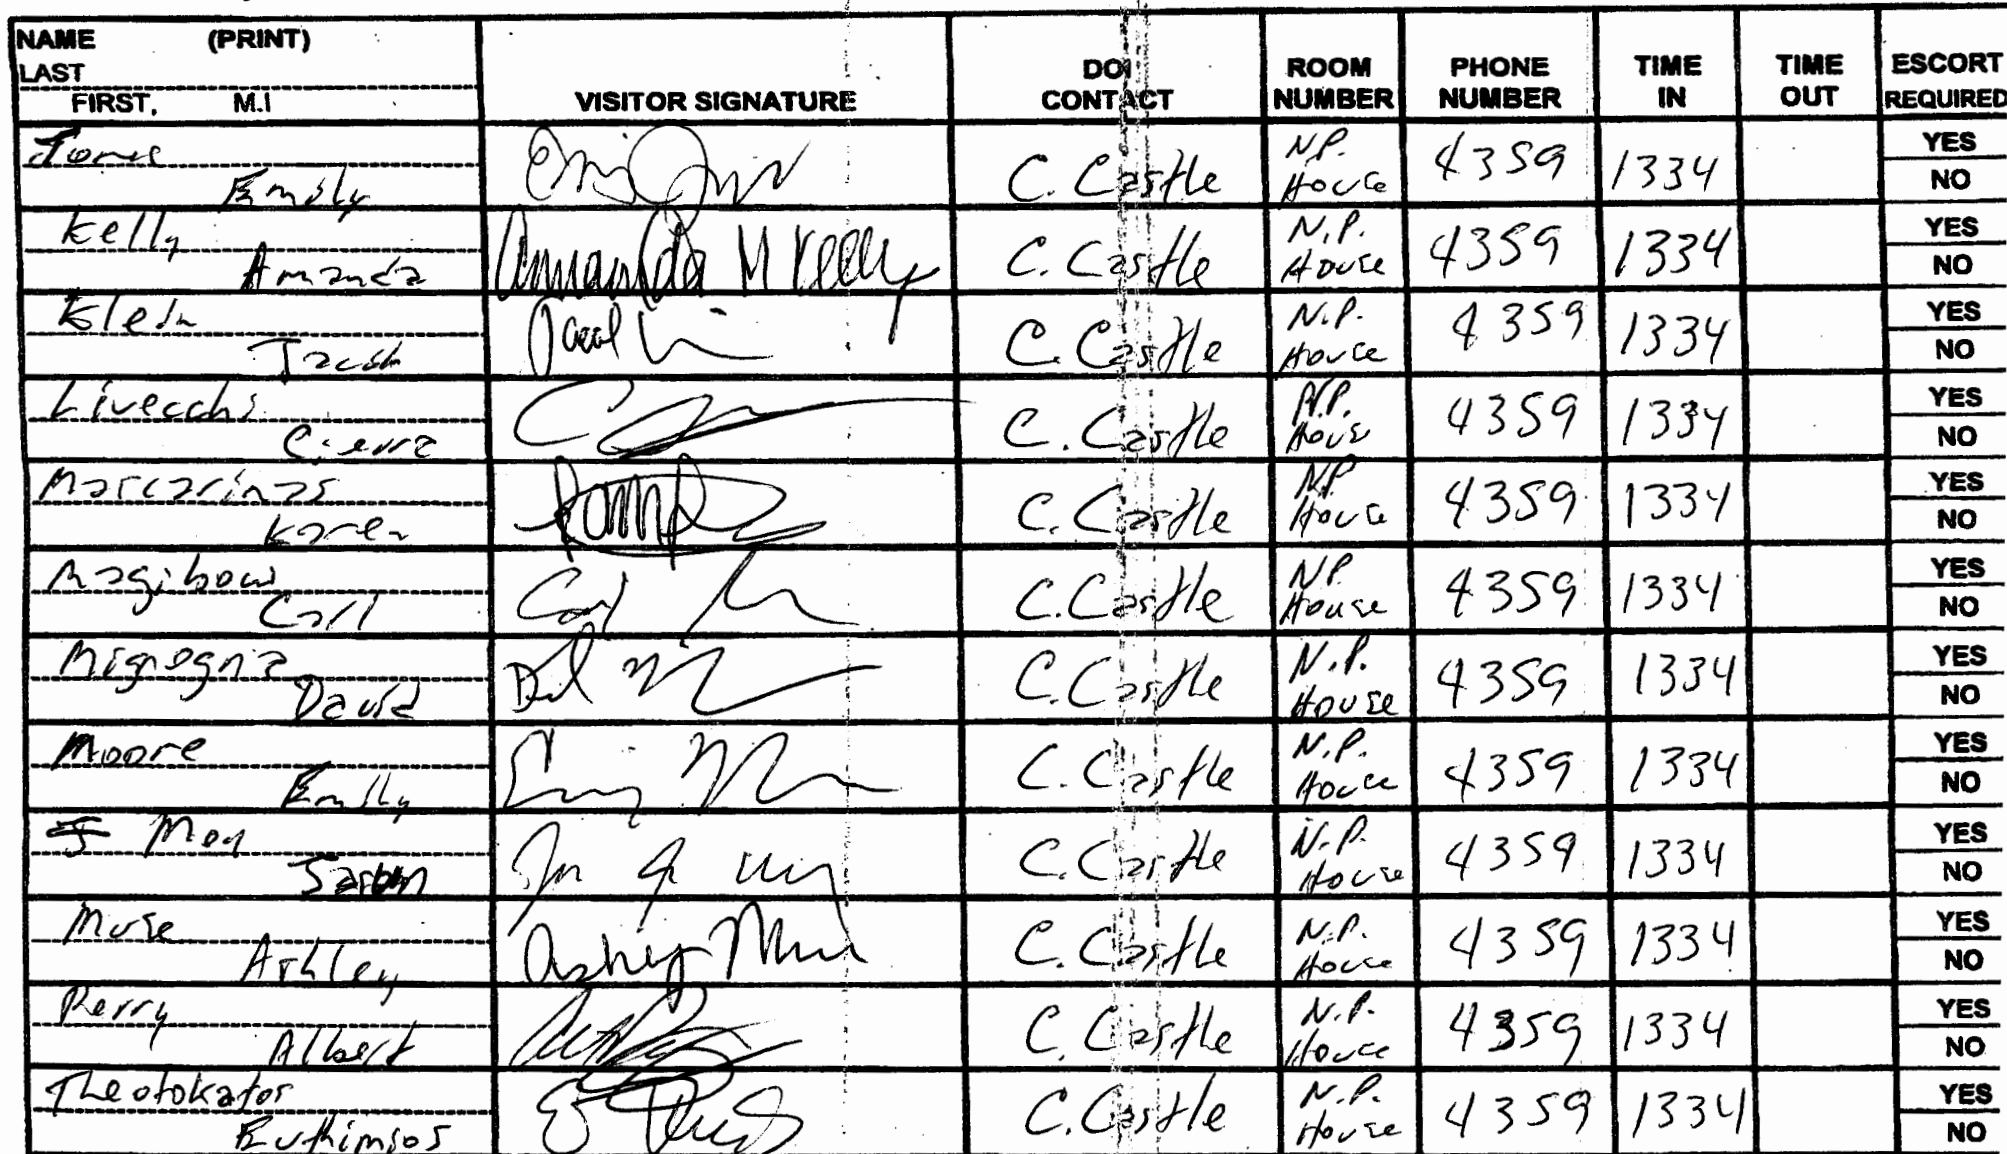 NAME (PRINT)
LAST
FIRST, M.I
VISITOR SIGNATURE
DOI CONTACT
ROOM NUMBER
PHONE NUMBER
TIME IN
TIME OUT
ESCORT REQUIRED
Emily C. Castle N.P. House 4359 1334 YES NO
Kelly Amanda Amanda M Kelly C. Castle N.P. House 4359 1334 YES NO
Klein Jacob Jacob C. Castle N.P. House 4359 1334 YES NO
Livecchi Cierra C. Castle N.P. House 4359 1334 YES NO
Karen C. Castle N.P. House 4359 1334 YES NO
Magibow Carl Carl C. Castle N.P. House 4359 1334 YES NO
Mignogna David C. Castle N.P. House 4359 1334 YES NO
Moore Emily C. Castle N.P. House 4359 1334 YES NO
Moy C. Castle N.P. House 4359 1334 YES NO
Muse Ashley Ashley Muse C. Castle N.P. House 4359 1334 YES NO
Perry Albert C. Castle N.P. House 4359 1334 YES NO
Theotokatos C. Castle N.P. House 4359 1334 YES NO